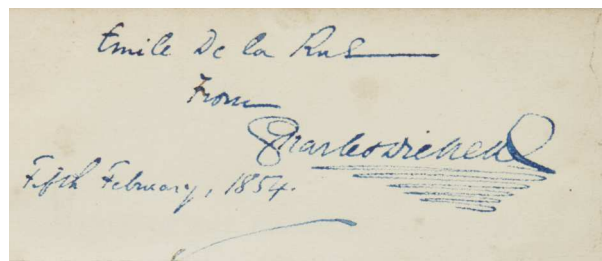 Emile De la Rue
From
Charles Dickens
Fifth February, 1854.